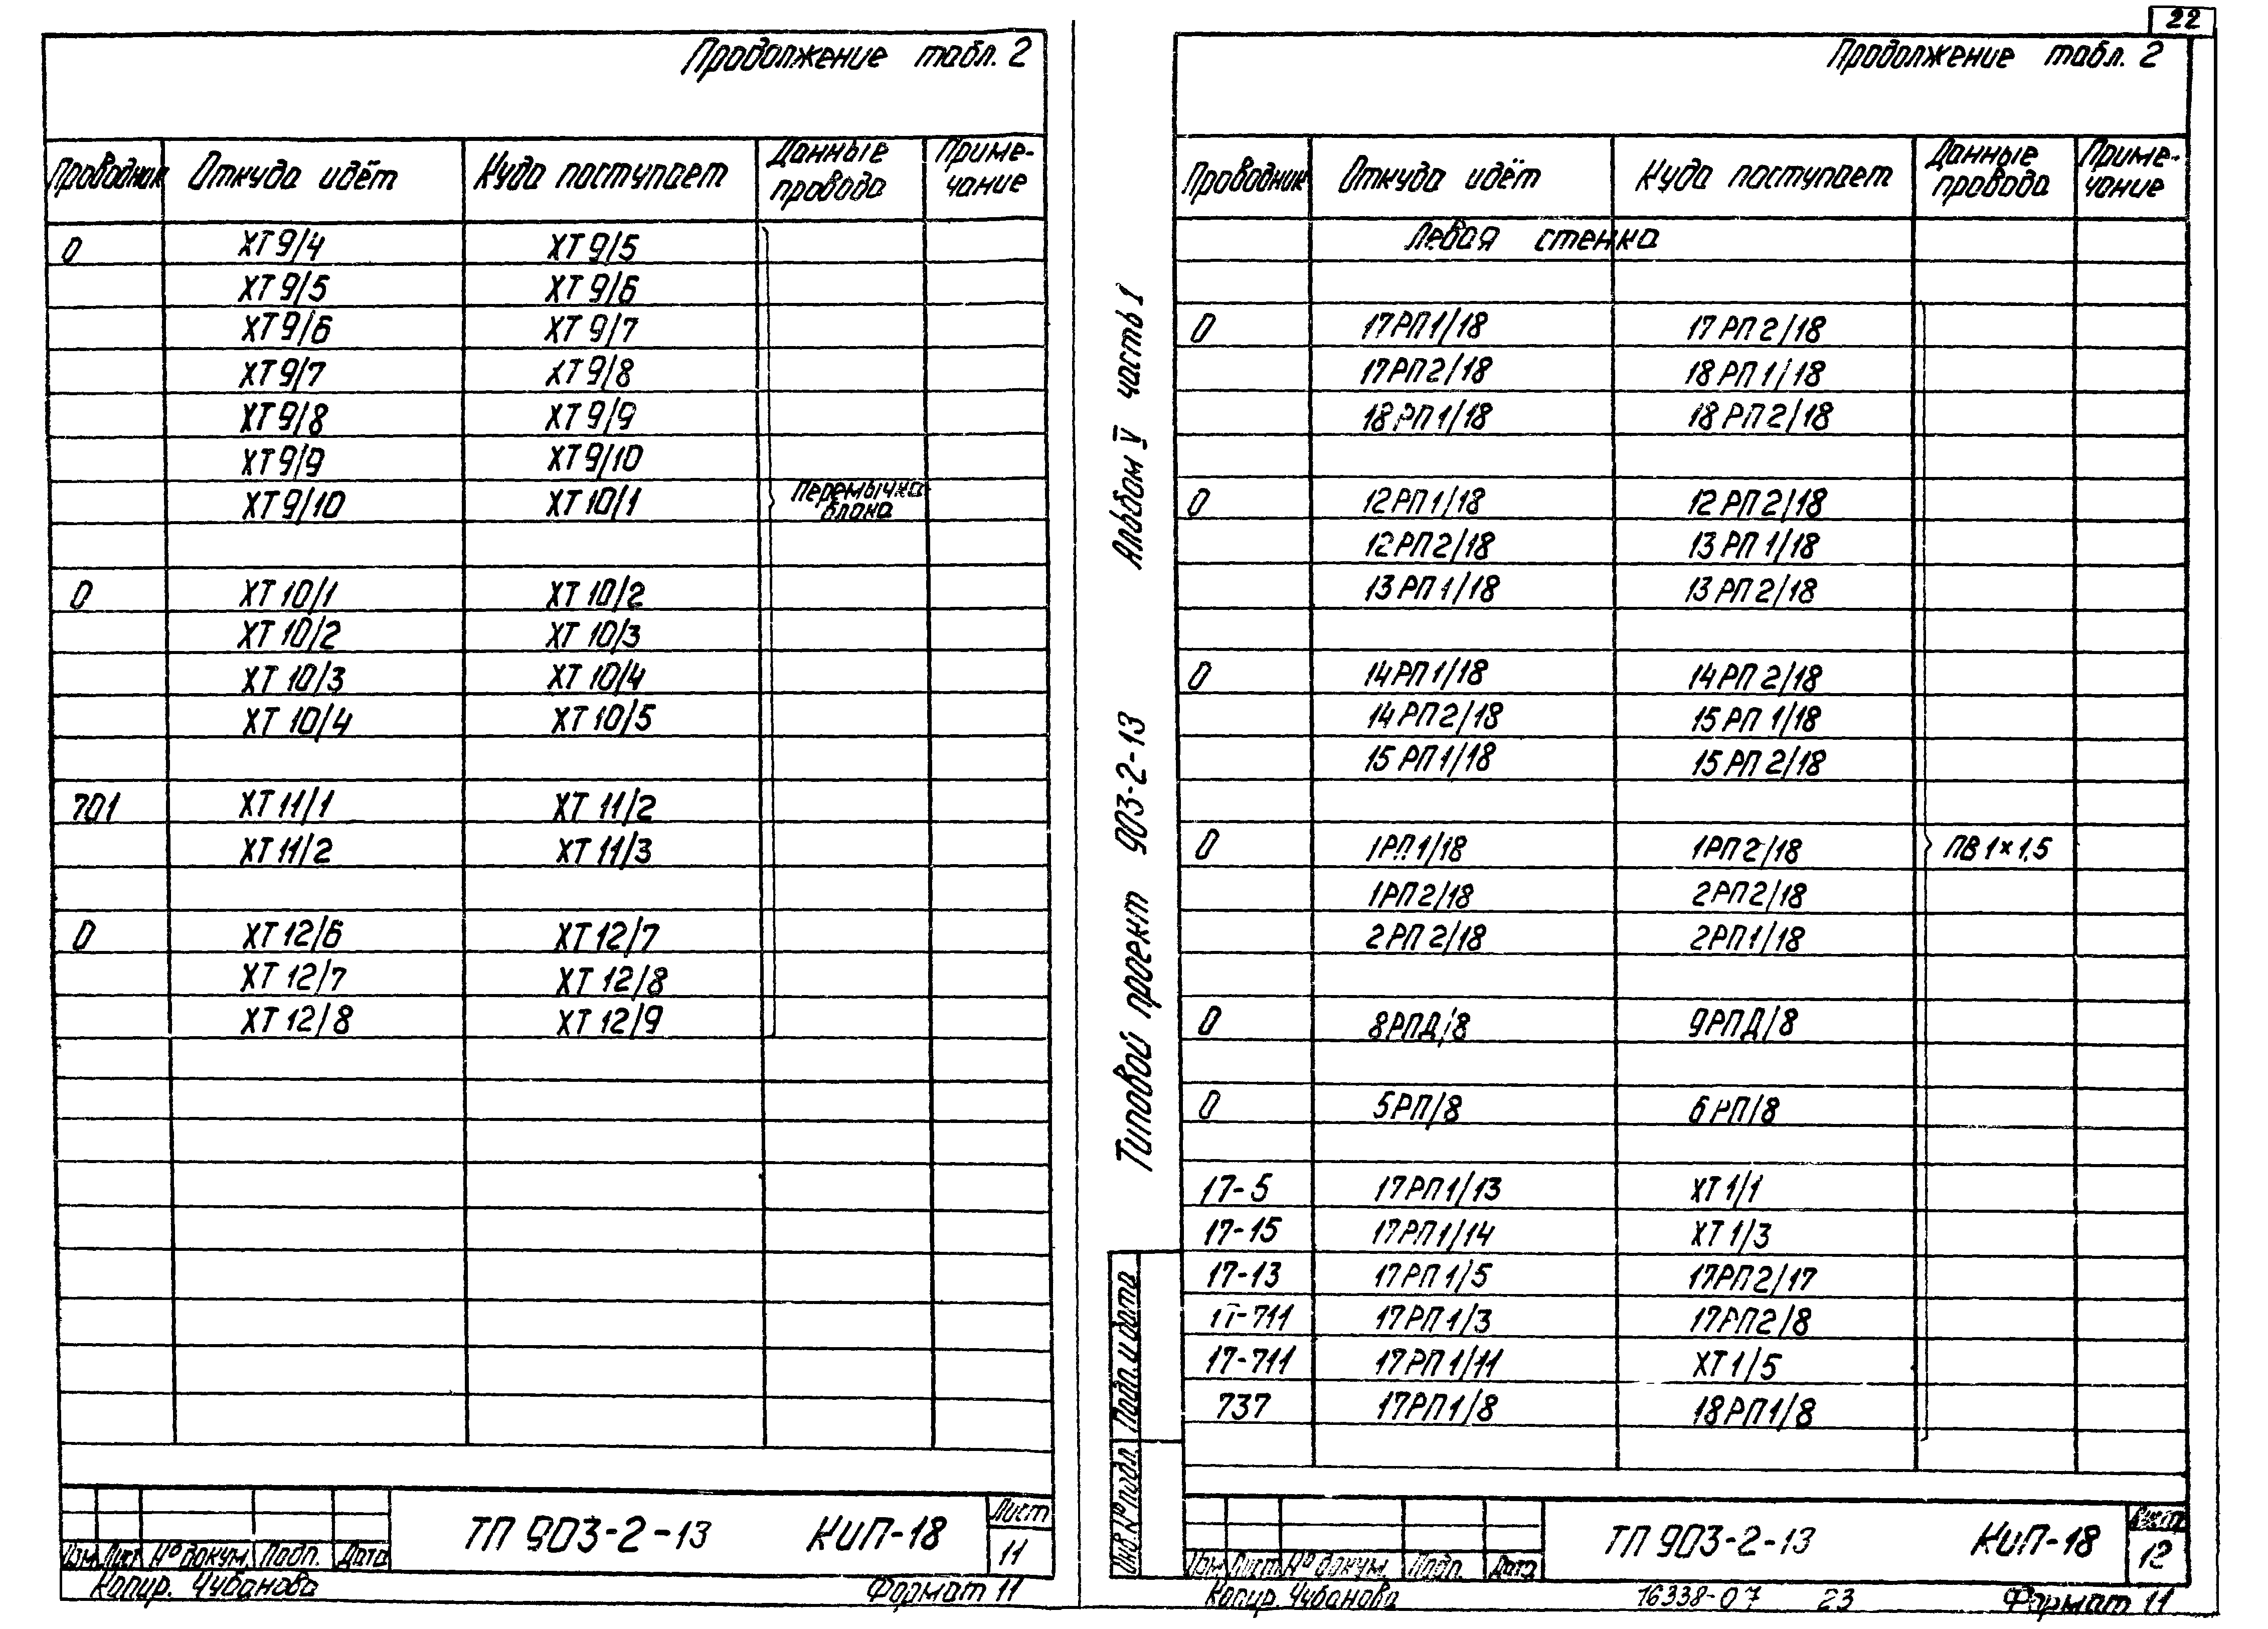 Продолжение табл. 2
Проводник Откуда идёт Куда поступает Данные провода Приме-чание
0 ХТ 9/4 ХТ 9/5
ХТ 9/5 ХТ 9/6
ХТ 9/6 ХТ 9/7
ХТ 9/7 ХТ 9/8
ХТ 9/8 ХТ 9/9
ХТ 9/9 ХТ 9/10
ХТ 9/10 ХТ 10/1 Перемычка блока
0 ХТ 10/1 ХТ 10/2
ХТ 10/2 ХТ 10/3
ХТ 10/3 ХТ 10/4
ХТ 10/4 ХТ 10/5
701 ХТ 11/1 ХТ 11/2
ХТ 11/2 ХТ 11/3
0 ХТ 12/6 ХТ 12/7
ХТ 12/7 ХТ 12/8
ХТ 12/8 ХТ 12/9
ТП 903-2-13 КИП-18
Лист
11
Изм. Лист № докум. Подп. Дата
Копир. Чубанова Формат 11
22
Продолжение табл. 2
Проводник Откуда идёт Куда поступает Данные провода Приме-чание
Левая стенка
0 17РП1/18 17РП2/18
17РП2/18 18РП1/18
18РП1/18 18РП2/18
0 12РП1/18 12РП2/18
12РП2/18 13РП1/18
13РП1/18 13РП2/18
0 14РП1/18 14РП2/18
14РП2/18 15РП1/18
15РП1/18 15РП2/18
0 1РП1/18 1РП2/18 ПВ 1×1,5
1РП2/18 2РП2/18
2РП2/18 2РП1/18
0 8РПД/8 9РПД/8
0 5РП/8 6РП/8
17-5 17РП1/13 ХТ 1/1
17-15 17РП1/14 ХТ 1/3
17-13 17РП1/5 17РП2/17
17-711 17РП1/3 17РП2/8
17-711 17РП1/11 ХТ 1/5
737 17РП1/8 18РП1/8
Типовой проект 903-2-13 Альбом V часть 1
Подп. и дата
Инв. № подл.
ТП 903-2-13 КИП-18
Лист
12
Изм. Лист № докум. Подп. Дата
Копир. Чубанова 16338-07 23 Формат 11